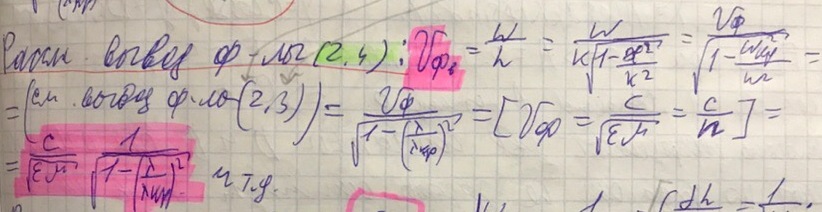 вывод ф-лы (2,4): V_{фв} = \frac{w}{h} = \frac{w}{k\sqrt{1-\frac{æ^2}{k^2}}} = \frac{V_ф}{\sqrt{1-\frac{w_{кр}^2}{w^2}}} =
= (см. вывод ф-лы (2,3)) = \frac{V_ф}{\sqrt{1-(\frac{λ}{λ_{кр}})^2}} = [V_ф = \frac{c}{\sqrt{εμ}} = \frac{c}{n}] =
= \frac{c}{\sqrt{εμ}} \frac{1}{\sqrt{1-(\frac{λ}{λ_{кр}})^2}} ч т.д.
= \frac{1}{